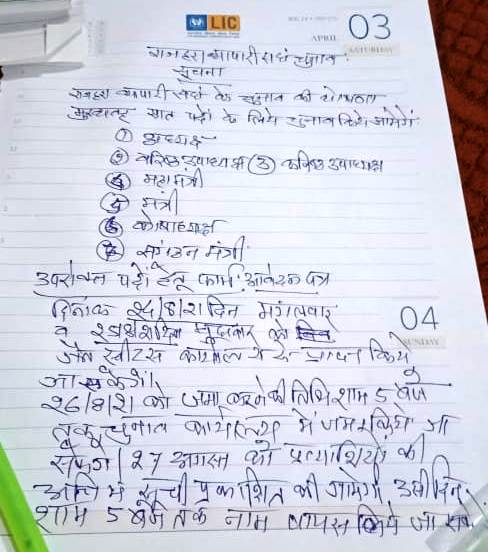 LIC
APRIL 03
SATURDAY
राजहरा व्यापारी संघ चुनाव
सूचना
राजहरा व्यापारी संघ के चुनाव की घोषणा
सात पदों के लिये चुनाव किये जायेगें
① अध्यक्ष
② वरिष्ठ उपाध्यक्ष ③ कनिष्ठ उपाध्यक्ष
④ महामंत्री
⑤ मंत्री
⑥ कोषाध्यक्ष
⑦ संगठन मंत्री
उपरोक्त पदों हेतू फार्म आवेदन पत्र
दिनांक 24/8/21 दिन मंगलवार
04
SUNDAY
व 25/8/21 दिन बुधवार को
जैन स्वीटस कार्यालय से प्राप्त किये
जा सकेंगे।
26/8/21 को जमा करने की तिथि शाम 5 बजे
तक चुनाव कार्यालय में जमा किये जा
सकेंगे। 27 अगस्त को प्रत्याशियों की
अंतिम सूची प्रकाशित की जायेगी उसी दिन
शाम 5 बजे तक नाम वापस लिये जा सकें